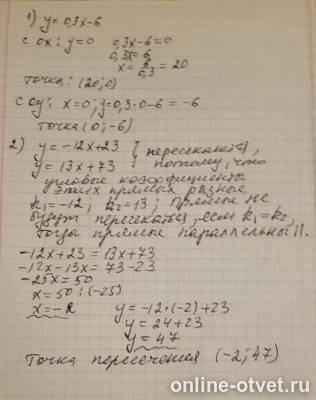 1) y=0,3x-6
с ox: y=0 0,3x-6=0
0,3x=6
x=6/0,3=20
точка: (20;0)
с oy: x=0; y=0,3·0-6=-6
точка (0;-6)
2) y=-12x+23 } пересекаются,
y=13x+73 потому, что
угловые коэффициенты
этих прямых разные
k₁=-12; k₂=13; прямые не
будут пересекаться, если k₁=k₂,
тогда прямые параллельны ||.
-12x+23=13x+73
-12x-13x=73-23
-25x=50
x=50:(-25)
x=-2 y=-12·(-2)+23
y=24+23
y=47
Точка пересечения (-2;47)
online-otvet.ru